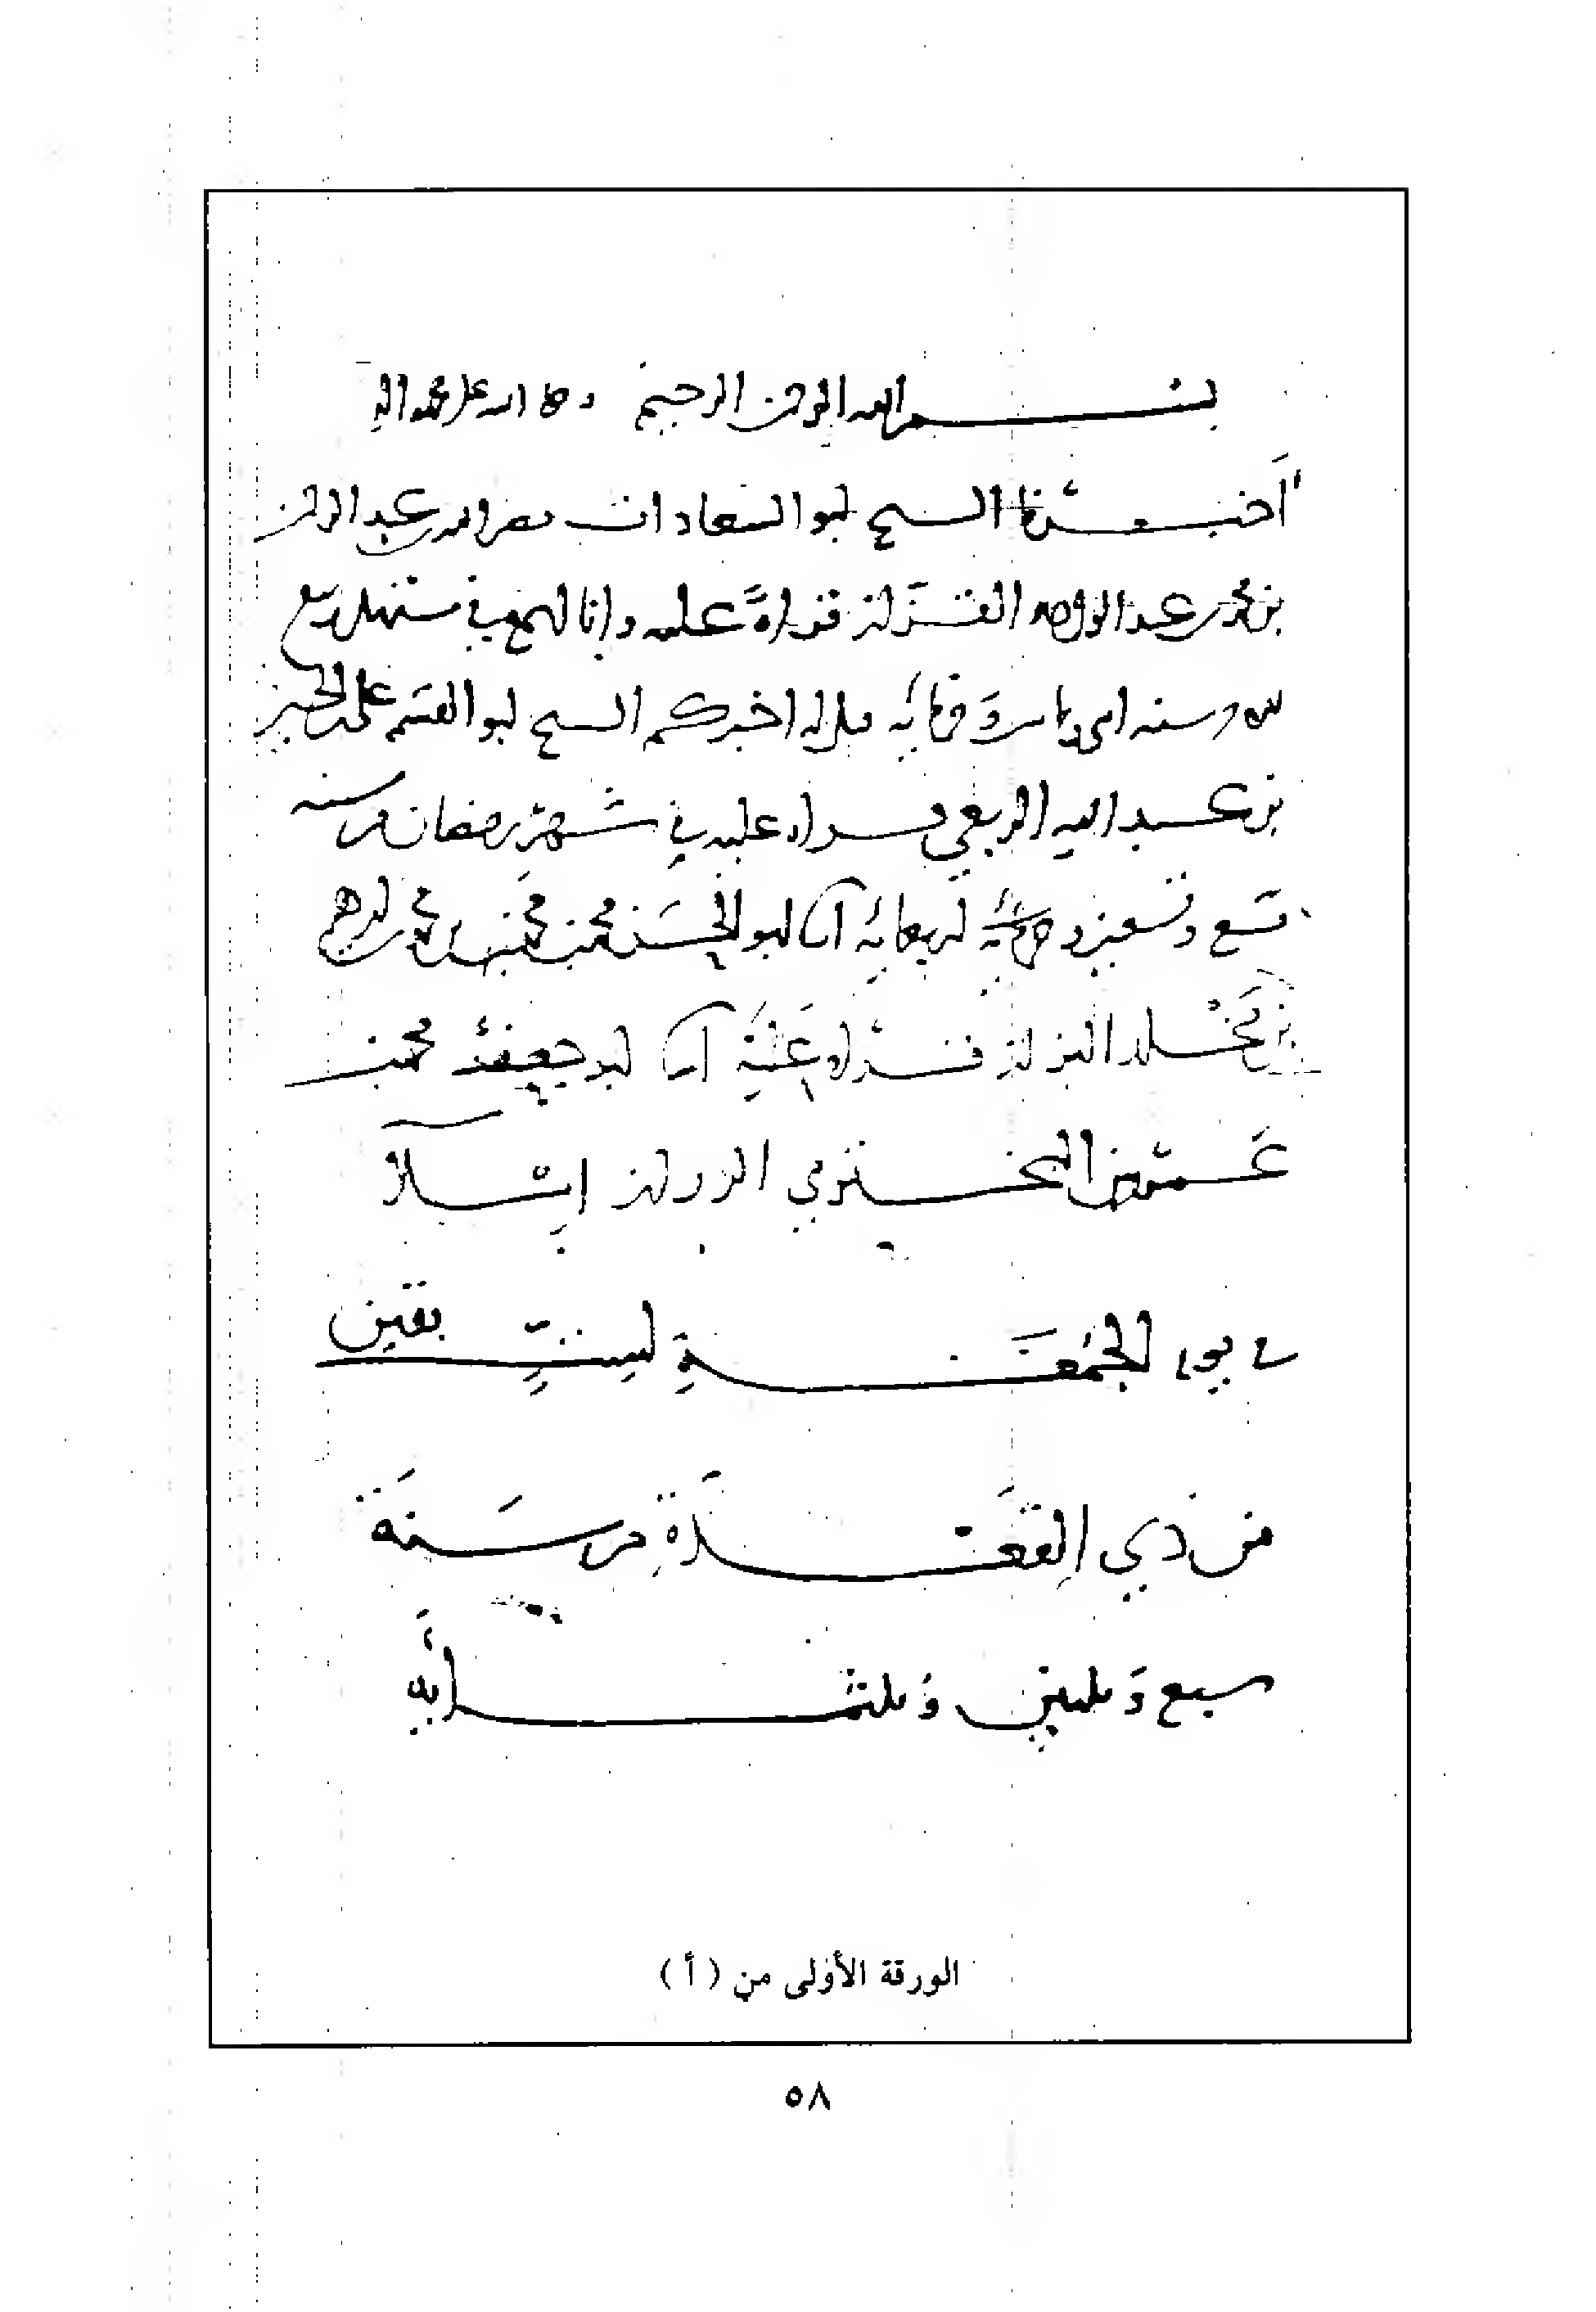 بسم الله الرحمن الرحيم وصلى الله على محمد واله
أخبرنا الشيخ ابو السعادات نصر الله بن عبد الرحمن
بن محمد بن عبد الواحد القزاز قراءة عليه وانا اسمع في مستهل ربيع
سنة اثنى وخمس مائه قيل له اخبركم الشيخ ابو القسم على بن الحسين
بن عبد الله الربعي قراءه عليه في شهر رمضان من سنه
تسع وتسعين و اربعمائه انا ابو الحسن محمد بن محمد بن محمد بن ابرهيم
بن مخلد البزاز قراءه عليه انا ابو جعفر محمد بن
عمرو بن البختري الرزاز املاء
يوم الجمعة لست بقين
من ذي القعدة من سنة
سبع وثلثين وثلثمائه
الورقة الأولى من ( أ )
٥٨